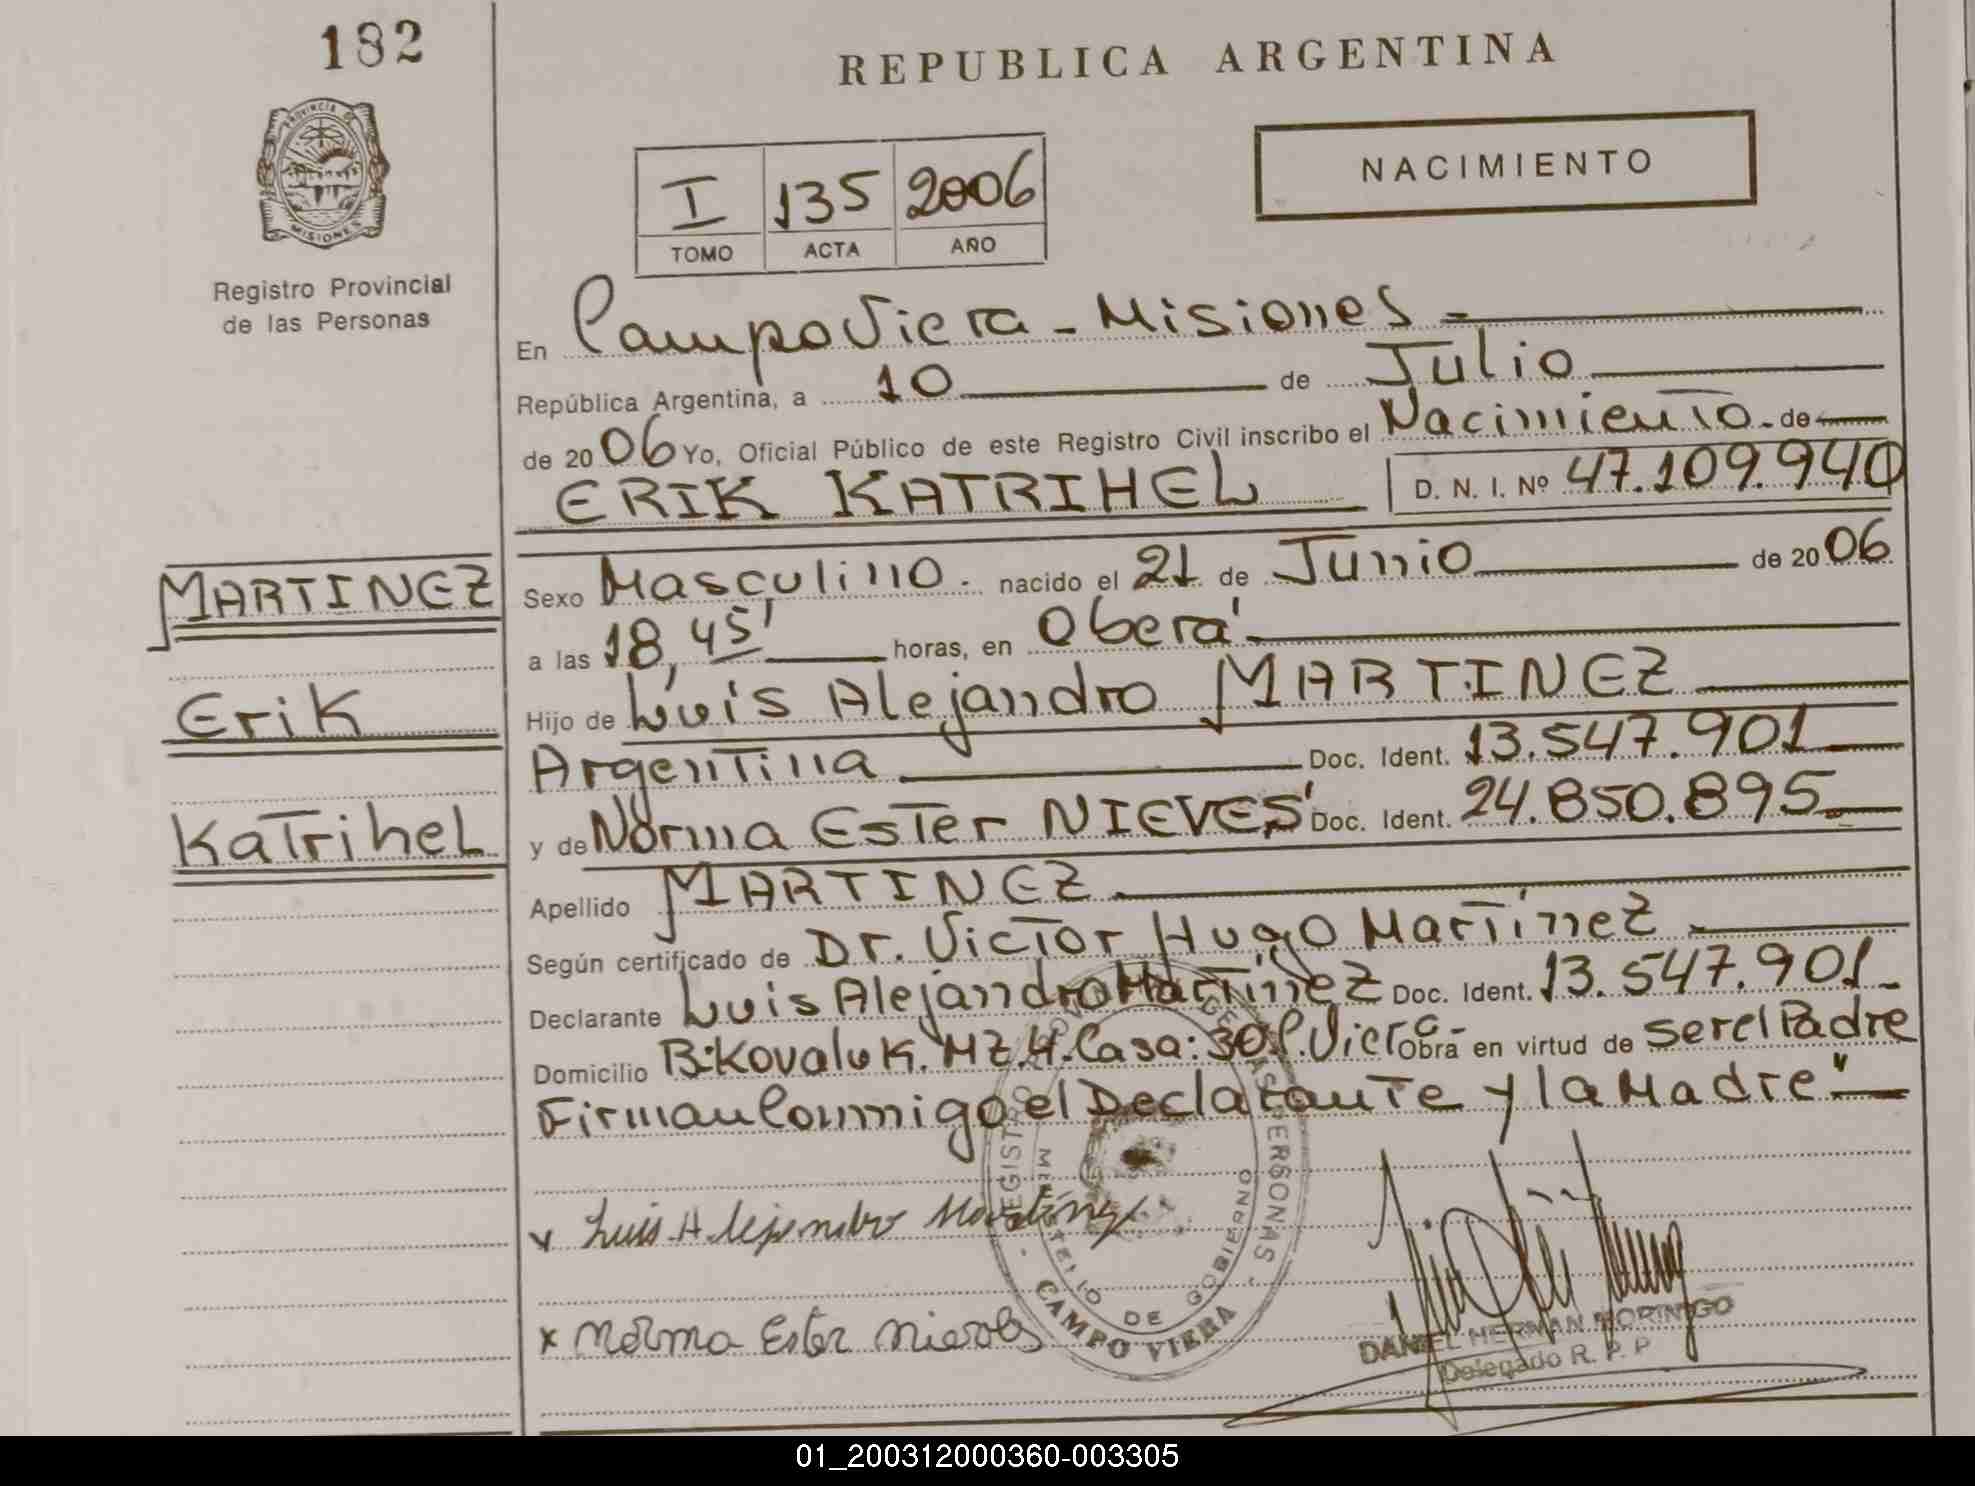 182
REPUBLICA ARGENTINA
PROVINCIA DE
MISIONES
Registro Provincial
de las Personas
NACIMIENTO
I 135 2006
TOMO ACTA AÑO
En Campo Viera - Misiones -
República Argentina, a 10 de Julio
de 2006 Yo, Oficial Público de este Registro Civil inscribo el Nacimiento - de
ERIK KATRIHEL D. N. I. Nº 47.109.940
MARTINEZ
Erik
KatriheL
Sexo Masculino. nacido el 21 de Junio de 2006
a las 18,45' horas, en Oberá
Hijo de Luis Alejandro MARTINEZ
Argentina Doc. Ident. 13.547.901
y de Norma Ester NIEVES Doc. Ident. 24.850.895
Apellido MARTINEZ
Según certificado de Dr. Victor Hugo Martinez
Declarante Luis Alejandro Martinez Doc. Ident. 13.547.901
Domicilio B:Kovaluk. Mz.H. Casa: 30 C. Viera - Obra en virtud de ser el Padre
Firman Conmigo el Declarante y la Madre"
x Luis Alejandro Martinez
x Norma Ester Nieves
REGISTRO DE LAS PERSONAS
MINISTERIO DE GOBIERNO
CAMPO VIERA
DANIEL HERNAN MORINIGO
Delegado R. P. P
01_200312000360-003305